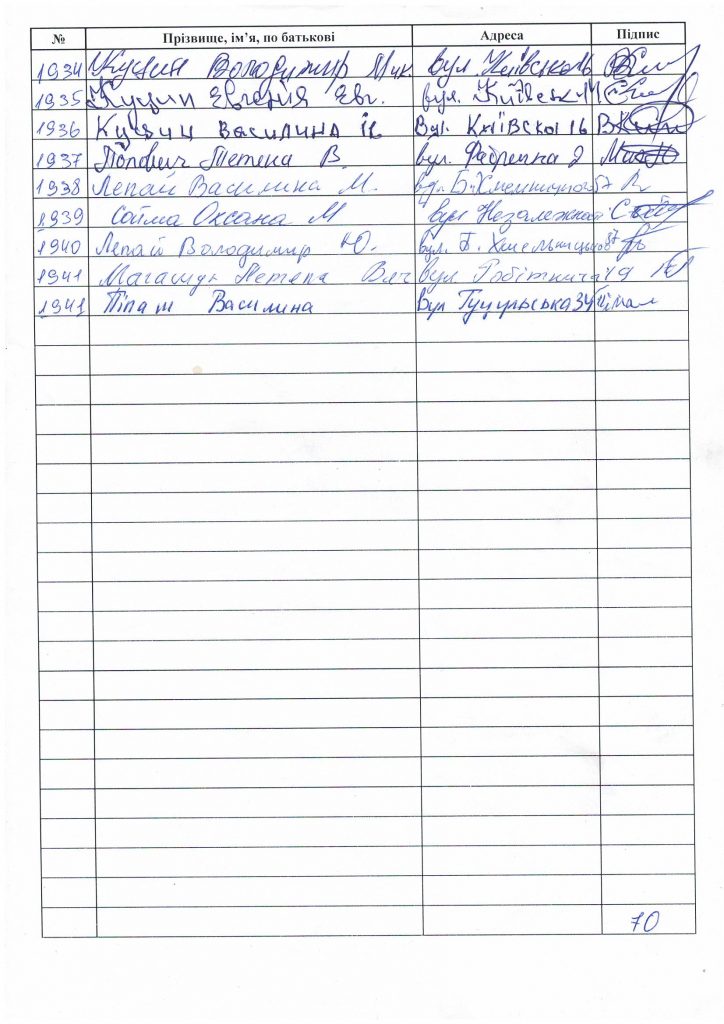 № Прізвище, ім’я, по батькові Адреса Підпис
1934 Куцин Володимир Мик. вул. Київська
1935 Куцин Євгенія Евг. вул. Київська
1936 Куцин Василина Ів Вул. Київска 16
1937 Попович Тетена В. вул. Фабрична 2
1938 Лепай Василина М. вул Б. Хмельницького 87
1939 Сойма Оксана М вул Незалежност
1940 Лепай Володимир Ю. вул. Б. Хмельницького 87
1941 Вяч вул Робітнича 19
1941 Василина Вул Гуцульська 34
70